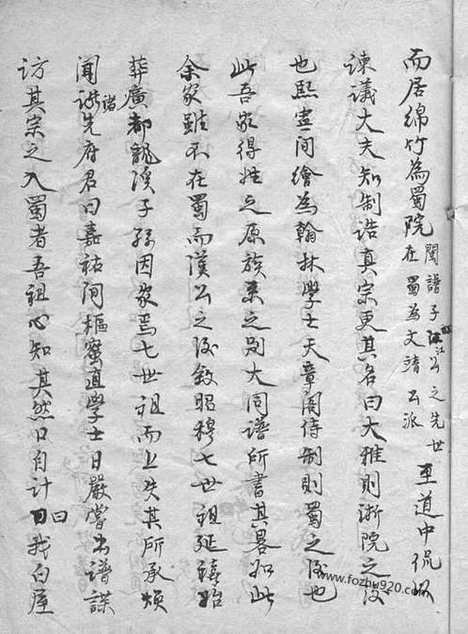 而居綿竹為蜀院
閩譜子江公之先世
在蜀為文靖公派
至道中侃㳂
諫議大夫知制誥真宗更其名曰大雅則浙院之後
也熙寧間繪為翰林學士天章閣侍制則蜀之後也
此吾家得姓之原族系之別大同譜所書其畧如此
余家雖不在蜀而漢公之後敘昭穆七世祖延禧始
葬廣都龍溪子孫因家焉七世祖而上失其所承煩
聞諸先府君曰嘉祐間樞蜜直學士日嚴嘗出譜諜
訪其宗之入蜀者吾祖心知其然口自計曰我白屋
www.fozhu920.com